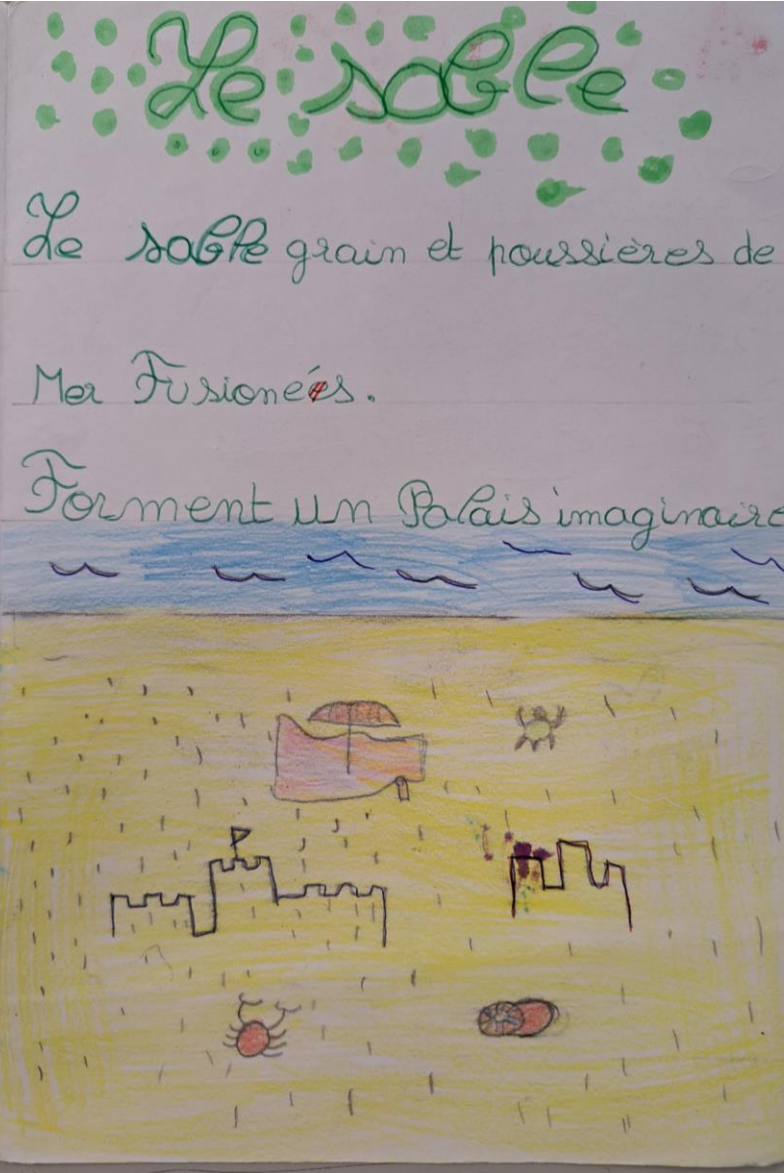 Le sable
Le sable grain et poussières de
Mer Fusionées.
Forment un Palais imaginaire